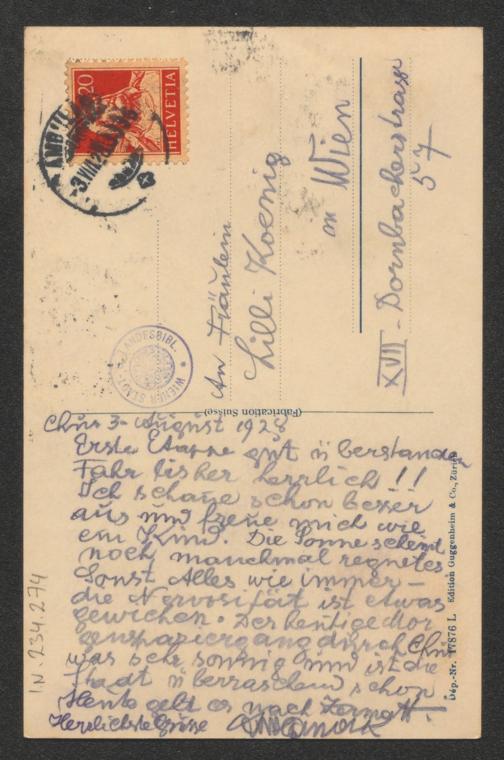 20
HELVETIA
AMBULANT
3.VIII.28
An Fräulein
Lilli Koenig
in Wien
XVII - Dornbacherstrasse
57
LANDESBIBL.
WIENER STADT-
(Fabrication Suisse)
Dép.-Nr. 17876 L Edition Guggenheim & Co., Zürich
IN 234.274
Chur 3- August 1928
Erste Etappe gut überstanden
Fahr bisher herrlich!!
Ich schaue schon besser
aus und freue mich wie
ein Kind. Die Sonne scheint
noch manchmal regnet es
Sonst Alles wie immer –
die Nervosität ist etwas
gewichen. Der heutige Mor
genspaziergang durch Chur
was sehr sonnig und ist die
Stadt überraschend schon
Heute geht es nach Zermatt.
Herzlichste Grüsse